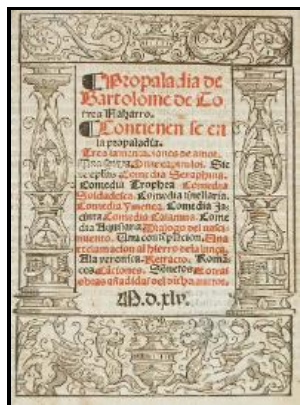 ¶ Propaladia de
Bartolome de To
rres Naharro.
¶ Contienen se en
la propaladia.
Tres lamentaciones de amor.
Una satyra. Diez capitulos. Sie
te epistolas. Comedia Seraphina.
Comedia Trophea. Comedia
Soldadesca. Comedia tinellaria.
Comedia Ymenea. Comedia Ja
cinta Comedia Calamita. Come
dia Aquilana. Dialogo del nasci
miento. Una contemplacion. Una
exclamacion al hierro de la lança.
A la veronica. Retracto. Roman
ces. Cãciones. Sonetos. E otras
obras añadidas del dicho auctor.
M.d.xlv.